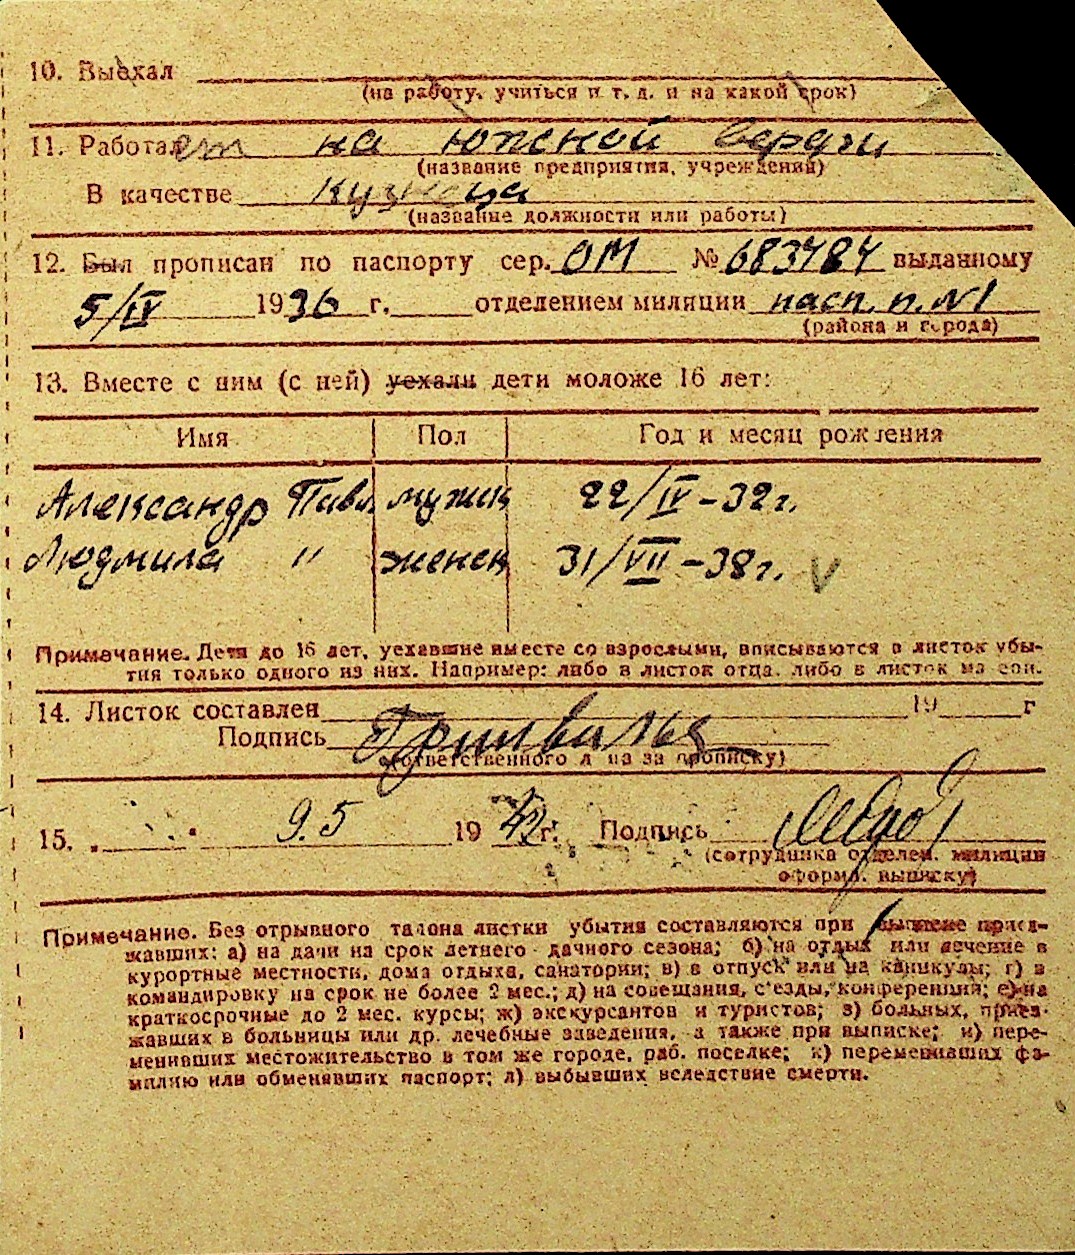 10. Выехал
(на работу, учиться и т. д. и на какой срок)
11. Работает на южской верфи
(название предприятия, учреждения)
В качестве кузнеца
(название должности или работы)
12. Был прописан по паспорту сер. ОМ № 683484 выданному
5/IV 1936 г. отделением милиции насп. п. №1
(района и города)
13. Вместе с ним (с ней) уехали дети моложе 16 лет:
Имя Пол Год и месяц рождения
Александр Павл. мужск 22/IV-32г.
Людмила " женск 31/VII-38г. V
Примечание. Дети до 16 лет, уехавшие вместе со взрослыми, вписываются в листок убы-
тия только одного из них. Например: либо в листок отца, либо в листок матери.
14. Листок составлен 19 г
Подпись
(ответственного лица за прописку)
15. 9.5 1942 г. Подпись
(сотрудника отделен. милиции
оформ. выписку)
Примечание. Без отрывного талона листки убытия составляются при выписке приез-
жавших: а) на дачи на срок летнего дачного сезона; б) на отдых или лечение в
курортные местности, дома отдыха, санатории; в) в отпуск или на каникулы; г) в
командировку на срок не более 2 мес.; д) на совещания, с'езды, конференции; е) на
краткосрочные до 2 мес. курсы; ж) экскурсантов и туристов; з) больных, приез-
жавших в больницы или др. лечебные заведения, а также при выписке; и) пере-
менивших местожительство в том же городе, раб. поселке; к) переменивших фа-
милию или обменявших паспорт; л) выбывших вследствие смерти.